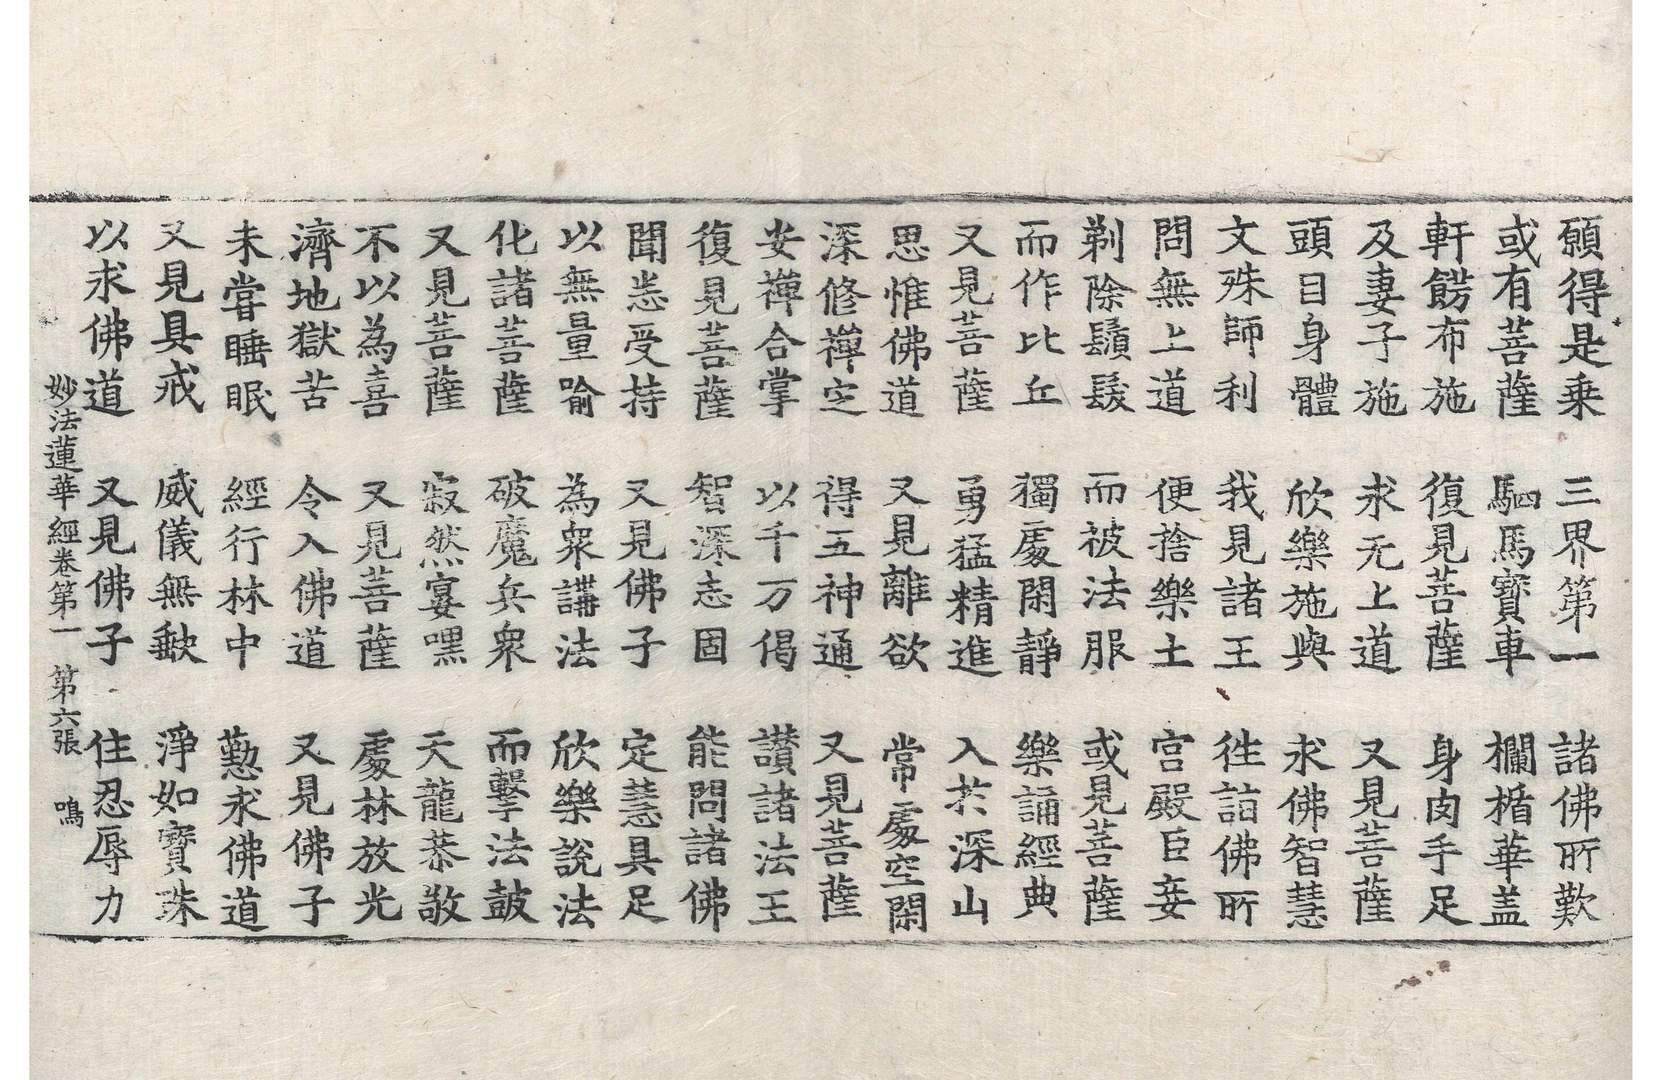 願得是乗　三界第一　諸佛所歎
或有菩薩　駟馬寶車　欄楯華盖
軒餝布施　復見菩薩　身肉手足
及妻子施　求无上道　又見菩薩
頭目身體　欣樂施與　求佛智慧
文殊師利　我見諸王　徃詣佛所
問無上道　便捨樂土　宫殿臣妾
剃除鬚髮　而被法服　或見菩薩
而作比丘　獨處閑靜　樂誦經典
又見菩薩　勇猛精進　入於深山
思惟佛道　又見離欲　常處空閑
深修禪定　得五神通　又見菩薩
安禪合掌　以千万偈　讃諸法王
復見菩薩　智深志固　能問諸佛
聞悉受持　又見佛子　定慧具足
以無量喻　為衆講法　欣樂説法
化諸菩薩　破魔兵衆　而擊法鼓
又見菩薩　寂然宴嘿　天龍恭敬
不以為喜　又見菩薩　處林放光
濟地獄苦　令入佛道　又見佛子
未甞睡眠　經行林中　懃求佛道
又見具戒　威儀無缺　淨如寶珠
以求佛道　又見佛子　住忍辱力
妙法蓮華經卷第一　第六張　鳴